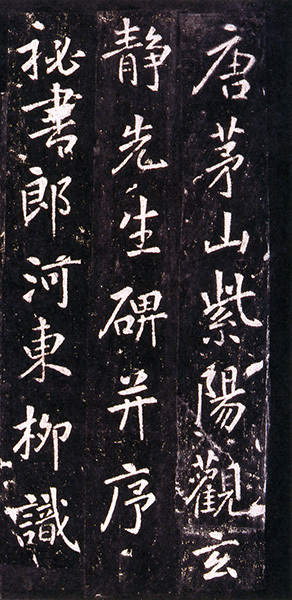 唐茅山紫陽觀玄
靜先生碑并序
秘書郎河東柳識